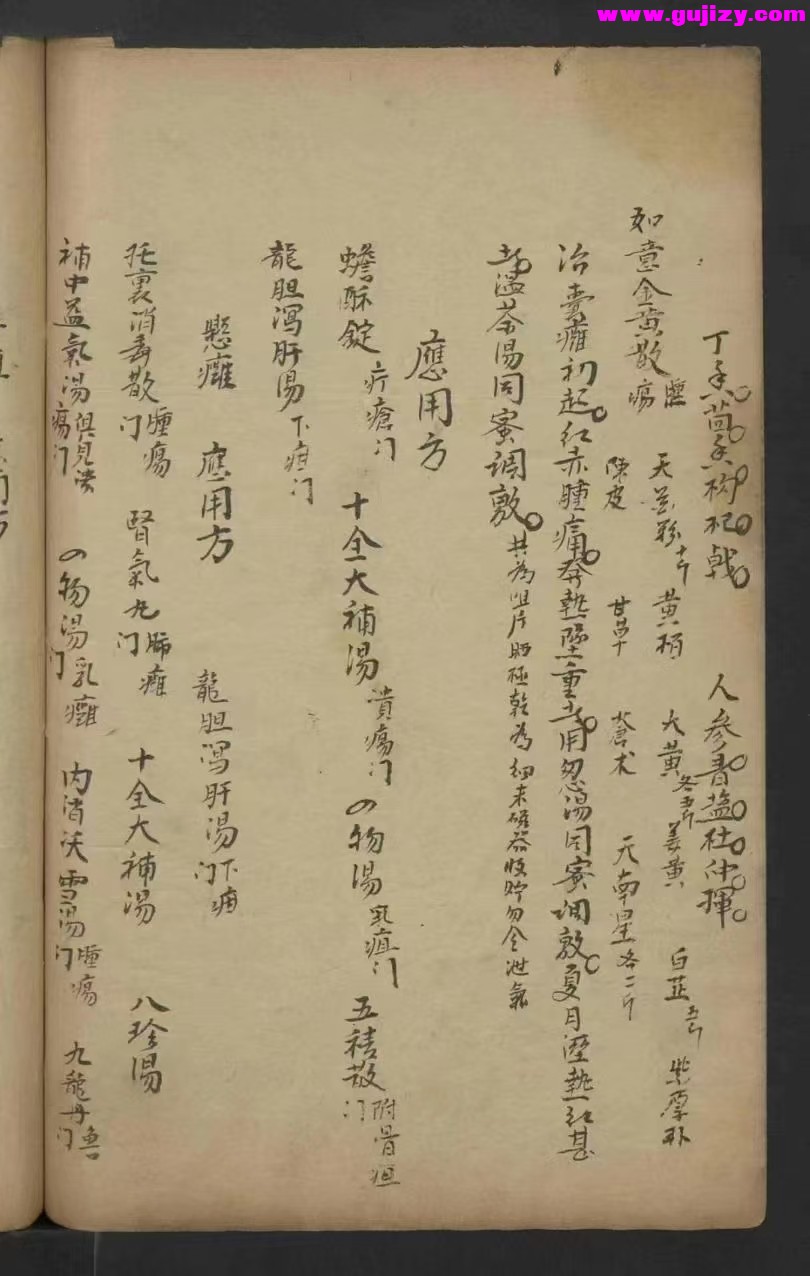 www.gujizy.com
丁香茴香枸杞戟 人参青盐杜仲揮
如意金黄散 腫瘍 天花粉十斤 黄栢 大黄各五斤 姜黄 白芷五斤 紫厚朴
陳皮 甘草 蒼术 天南星各二斤
治囊癰初起红赤腫痛發热墜重者用葱湯同蜜调敷夏月溼熱红甚
者温茶湯同蜜调敷 共為咀片晒極乾為细末磁器收貯勿令泄氣
應用方
蟾酥錠 疔瘡门 十全大補湯 潰瘍门 四物湯 乳疽门 五積散 附骨疽门
龍胆瀉肝湯 下疳门
懸癰 應用方 龍胆瀉肝湯 下疳门
托裏消毒散 腫瘍门 腎氣丸 肺癰门 十全大補湯 八珍湯
補中益氣湯 俱見潰瘍门 四物湯 乳癰门 内消沃雪湯 腫瘍门 九龍丹 魚口门